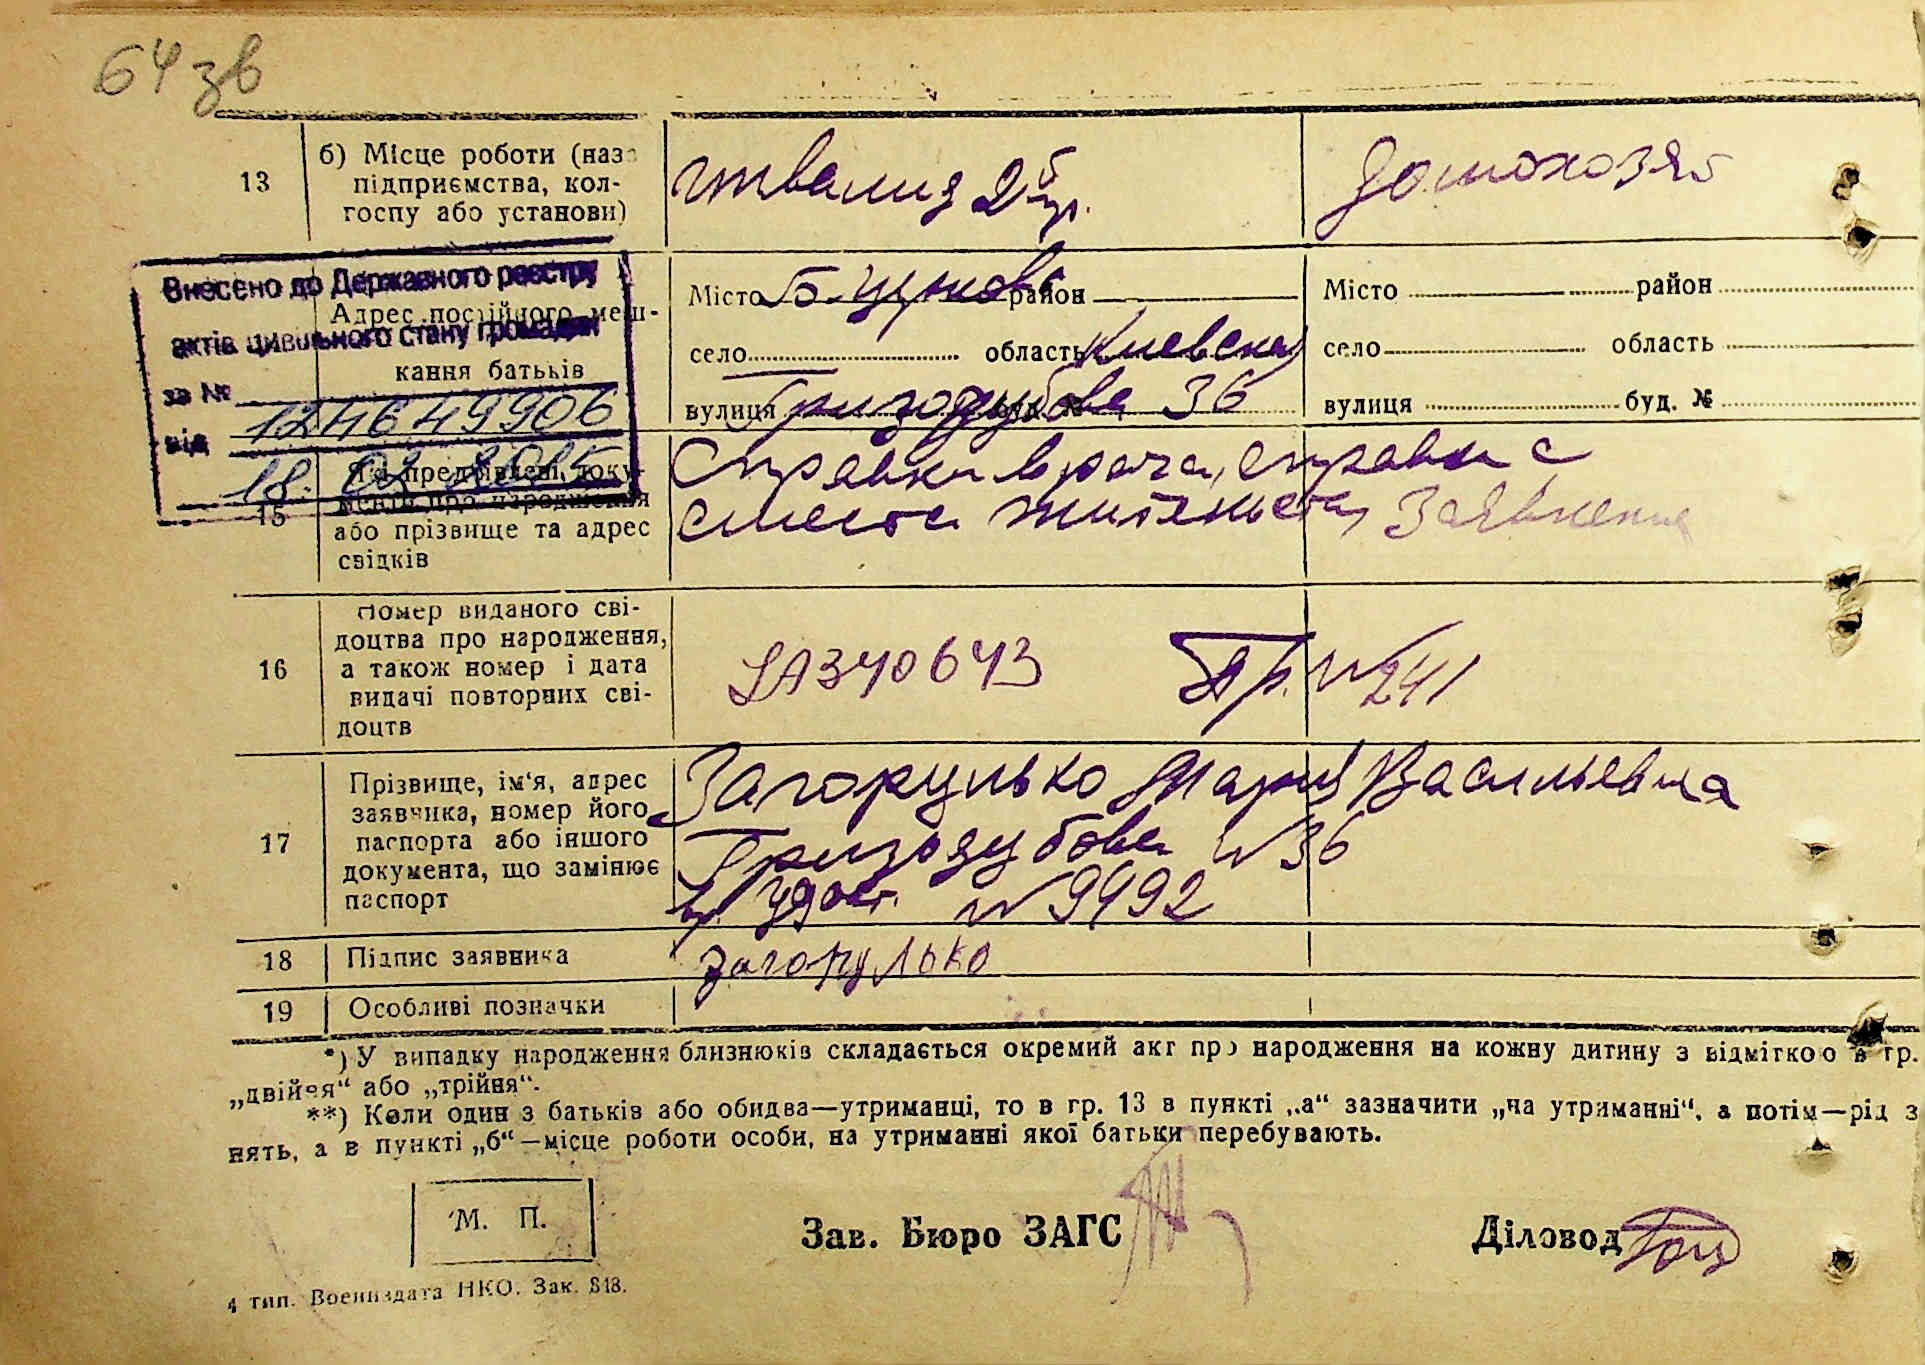 64 зв
13
б) Місце роботи (назва
підприємства, кол-
госпу або установи)
инвалид 2й гр.
домохоз
Внесено до Державного реєстру
актів цивільного стану громадян
за № 12464990б
від 18.
Адрес постійного меш-
кання батьків
Місто Б. Церковь район
село область Киевская
вулиця Гризодубова буд. № 36
Місто район
село область
вулиця буд. №
15
Які пред'явлені доку-
менти про народження
або прізвище та адрес
свідків
Справки врача, справки с
места жительства, Заявления
16
Номер виданого сві-
доцтва про народження,
а також номер і дата
видачі повторних сві-
доцтв
340643
№ 241
17
Прізвище, ім'я, адрес
заявника, номер його
паспорта або іншого
документа, що замінює
паспорт
Загорулько Мария Васильевна
Гризодубова №36
вр. удост. №9492
18
Підпис заявника
Загорулько
19
Особливі позначки
*) У випадку народження близнюків складається окремий акт про народження на кожну дитину з відміткою в гр.
„двійня“ або „трійня“.
**) Коли один з батьків або обидва—утриманці, то в гр. 13 в пункті „а“ зазначити „на утриманні“, а потім—рід з
нять, а в пункті „б“—місце роботи особи, на утриманні якої батьки перебувають.
М. П.
Зав. Бюро ЗАГС
Діловод
4 тип. Воениздата НКО. Зак. 818.